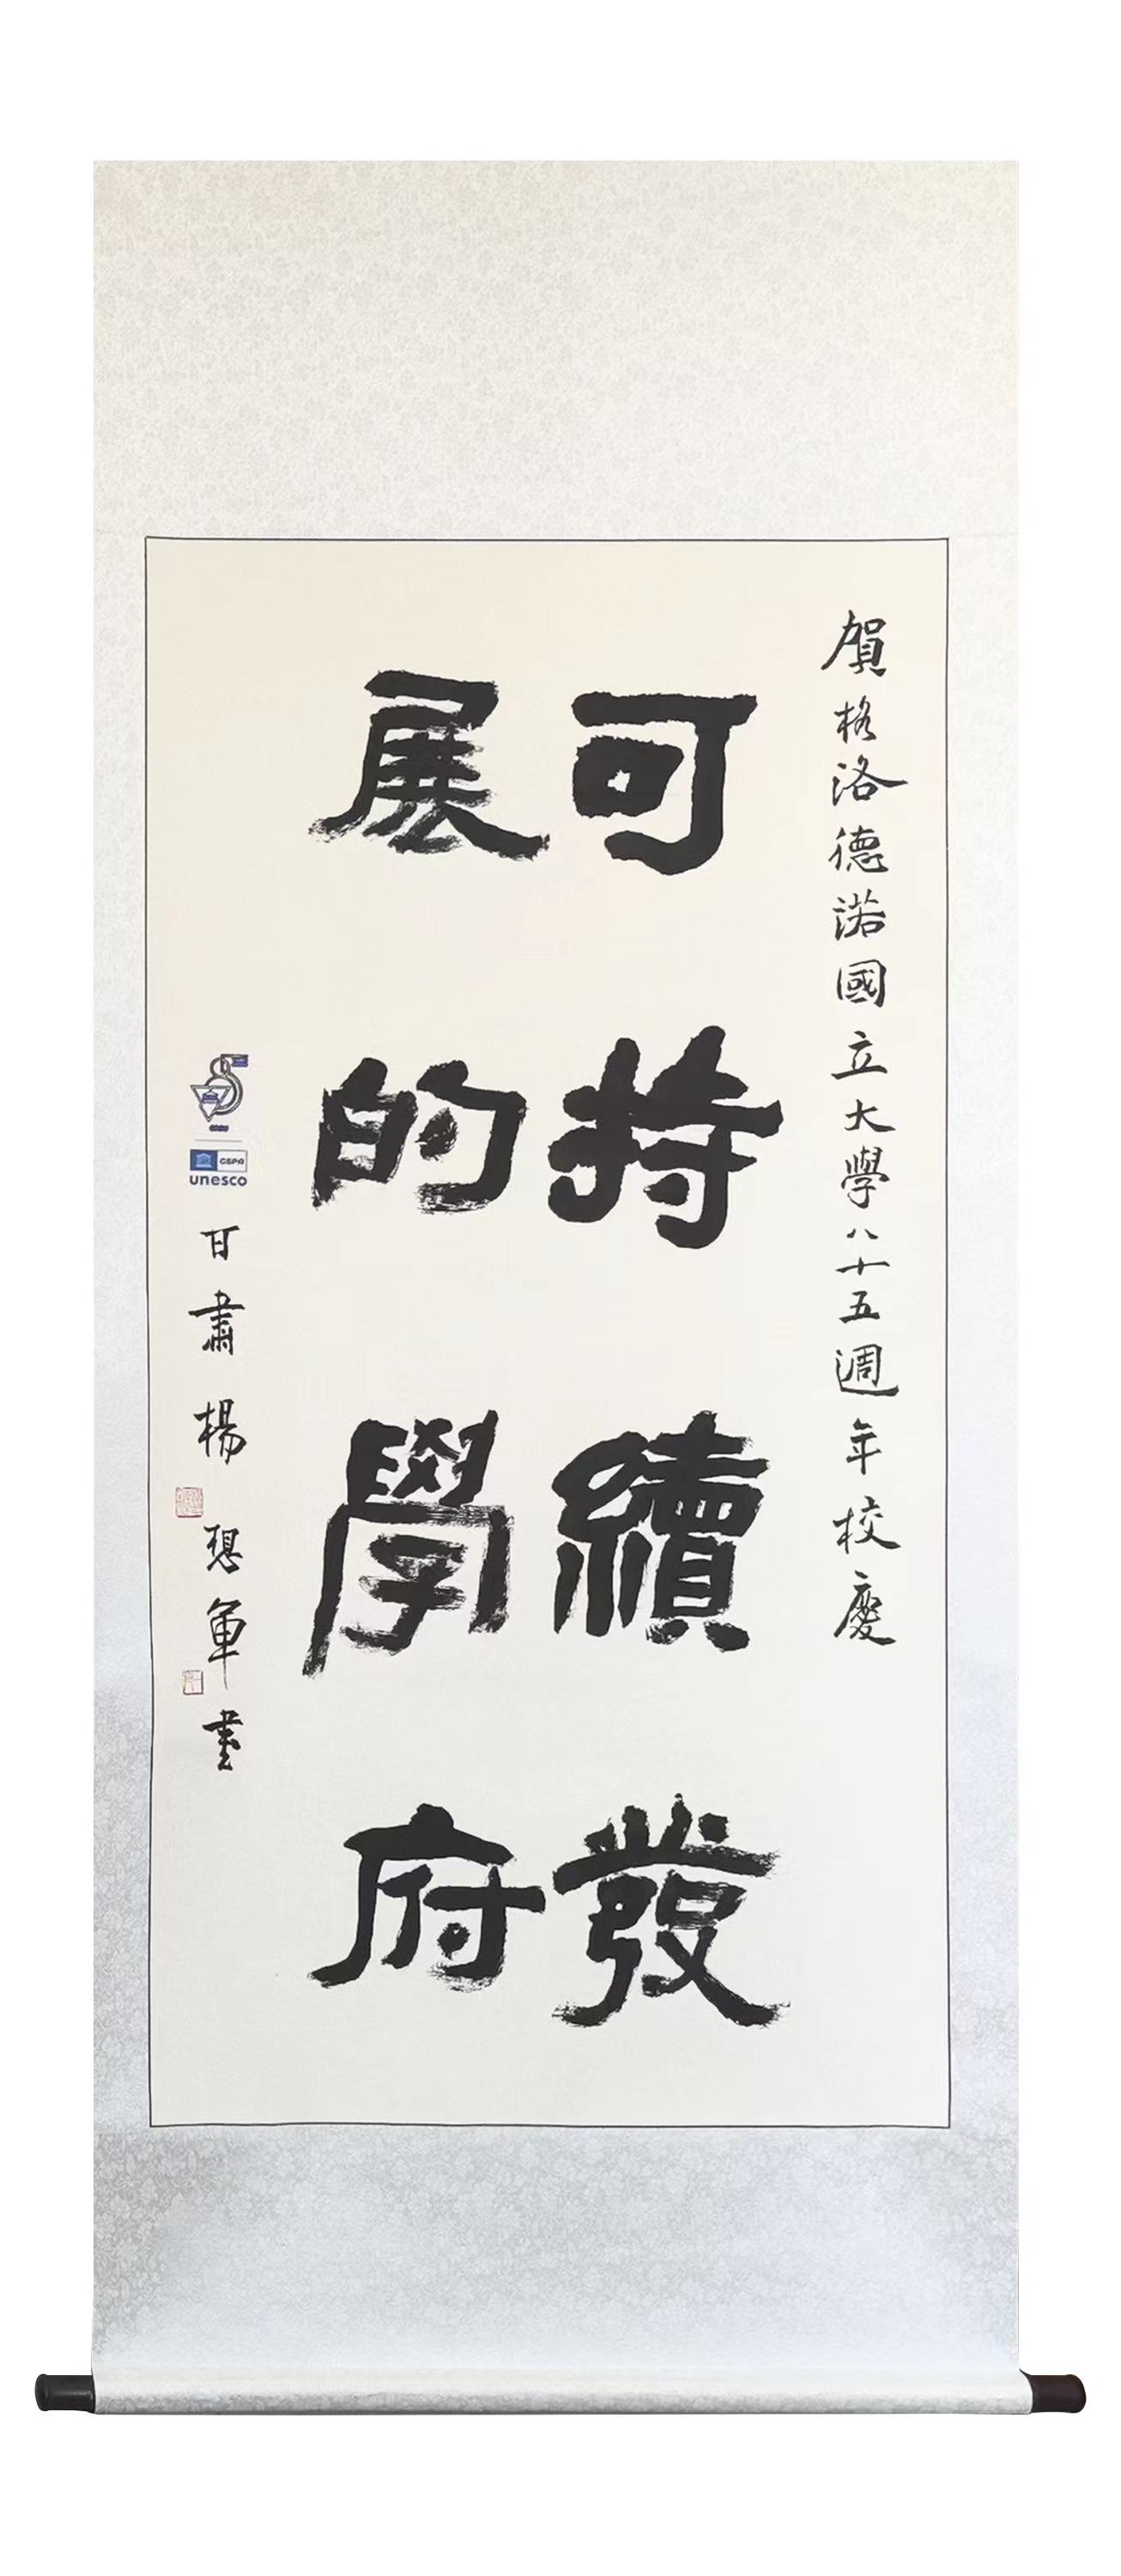 賀格洛德諾國立大學八十五週年校慶
可持續發
展的學府
85
CEPA
unesco
甘肅楊琞軍書